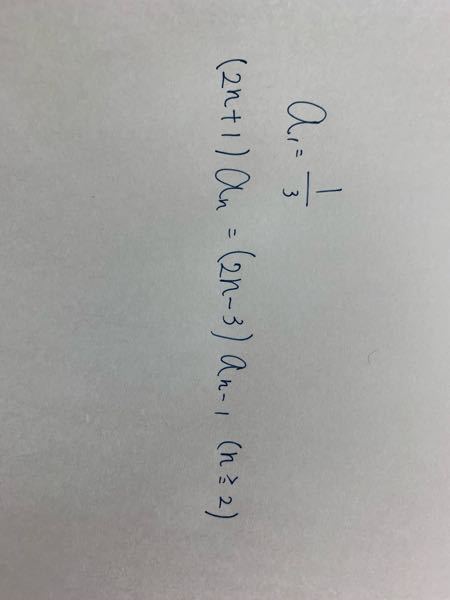 a₁ = 1/3
(2n+1) aₙ = (2n-3) aₙ₋₁ (n≧2)